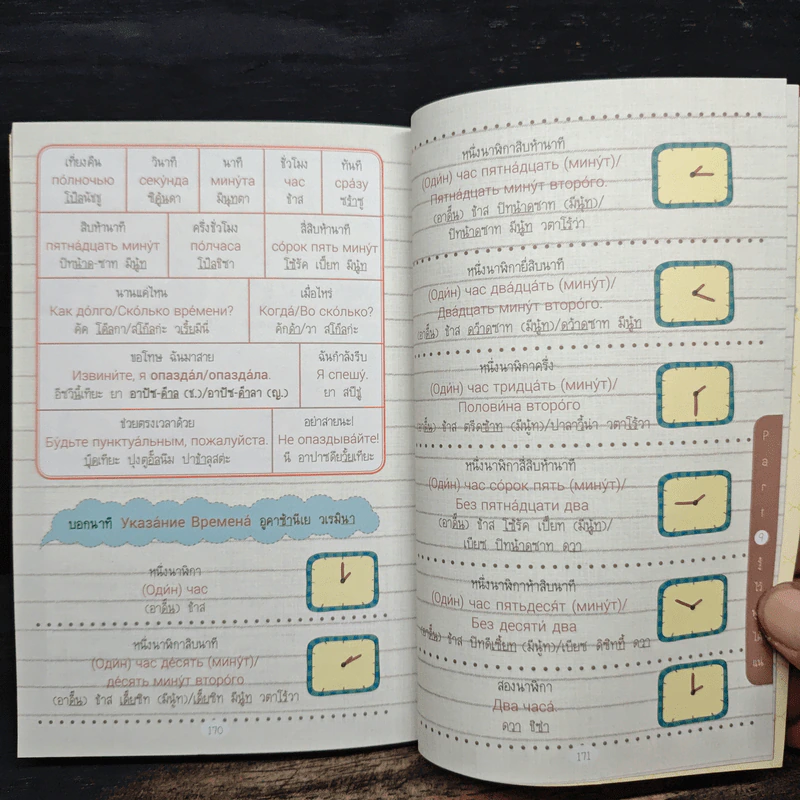 เที่ยงคืน
по́лночью
โป๊ลนัชชู
วินาที
секу́нда
ซิคุ๊นดา
นาที
мину́та
มินุทดา
ชั่วโมง
час
ช้าส
ทันที
сра́зу
ซร้าซู
สิบห้านาที
пятна́дцать мину́т
ปิทน้าด-ซาท มีนู้ท
ครึ่งชั่วโมง
по́лчаса
โป๊ลชิซา
สี่สิบห้านาที
со́рок пять мину́т
โซ้รัค เปี๊ยท มีนู้ท
นานแค่ไหน
Как до́лго/Ско́лько вре́мени?
คัค โด๊ลกา/สโก๊ลก่ะ วเรี๊ยมีนี่
เมื่อไหร่
Когда́/Во ско́лько?
คักด้า/วา สโก๊ลก่ะ
ขอโทษ ฉันมาสาย
Извини́те, я опазда́л/опазда́ла.
อีซวีนี้เทียะ ยา อาปัซ-ด๊าล (ช.)/อาปัซ-ด๊าลา (ญ.)
ฉันกำลังรีบ
Я спешу́.
ยา สปีชู่
ช่วยตรงเวลาด้วย
Бу́дьте пунктуа́льным, пожалуйста.
บุ๊ดเทียะ ปุงตูอั๊ลนึม ปาช้าลุสต่ะ
อย่าสายนะ!
Не опаздыва́йте!
นี อาปาซดึยวั้ยเทียะ
บอกนาที Указа́ние Времена́ อูคาซ้านีเย วเรมินา
หนึ่งนาฬิกา
(Оди́н) час
(อาดิ๊น) ช้าส
หนึ่งนาฬิกาสิบนาที
(Оди́н) час де́сять (мину́т)/
де́сять мину́т второ́го
(อาดิ๊น) ช้าส เด๊ียซิท (มีนู้ท)/เด๊ียซิท มีนู้ท วตาโร้วา
170
หนึ่งนาฬิกาสิบห้านาที
(Оди́н) час пятна́дцать (мину́т)/
Пятна́дцать мину́т второ́го.
(อาดิ๊น) ช้าส ปิทน้าดซาท (มีนู้ท)/
ปิทน้าดซาท มีนู้ท วตาโร้วา
หนึ่งนาฬิกายี่สิบนาที
(Оди́н) час два́дцать (мину́т)/
Два́дцать мину́т второ́го.
(อาดิ๊น) ช้าส ดว๊าดซาท (มีนู้ท)/ดว๊าดซาท มีนู้ท
หนึ่งนาฬิกาครึ่ง
(Оди́н) час тридца́ть (мину́т)/
Полови́на второ́го
(อาดิ๊น) ช้าส ตรีดซ้าท (มีนู้ท)/ปาลาวี้น่า วตาโร้วา
หนึ่งนาฬิกาสี่สิบห้านาที
(Оди́н) час со́рок пять (мину́т)/
Без пятна́дцати два
(อาดิ๊น) ช้าส โซ้รัค เปี๊ยท (มีนู้ท)/
เบียซ ปิทน้าดซาท ดวา
หนึ่งนาฬิกาห้าสิบนาที
(Оди́н) час пятьдеся́т (мину́т)/
Без десяти́ два
(อาดิ๊น) ช้าส ปิทดีเซี้ยท (มีนู้ท)/เบียซ ดิซิทที้ ดวา
สองนาฬิกา
Два часа́.
ดวา ชิซ่า
171
Part
9